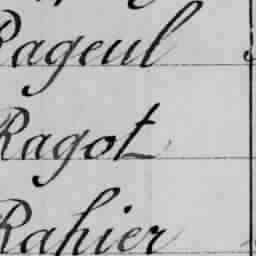 Rageul
Ragot
Rahier